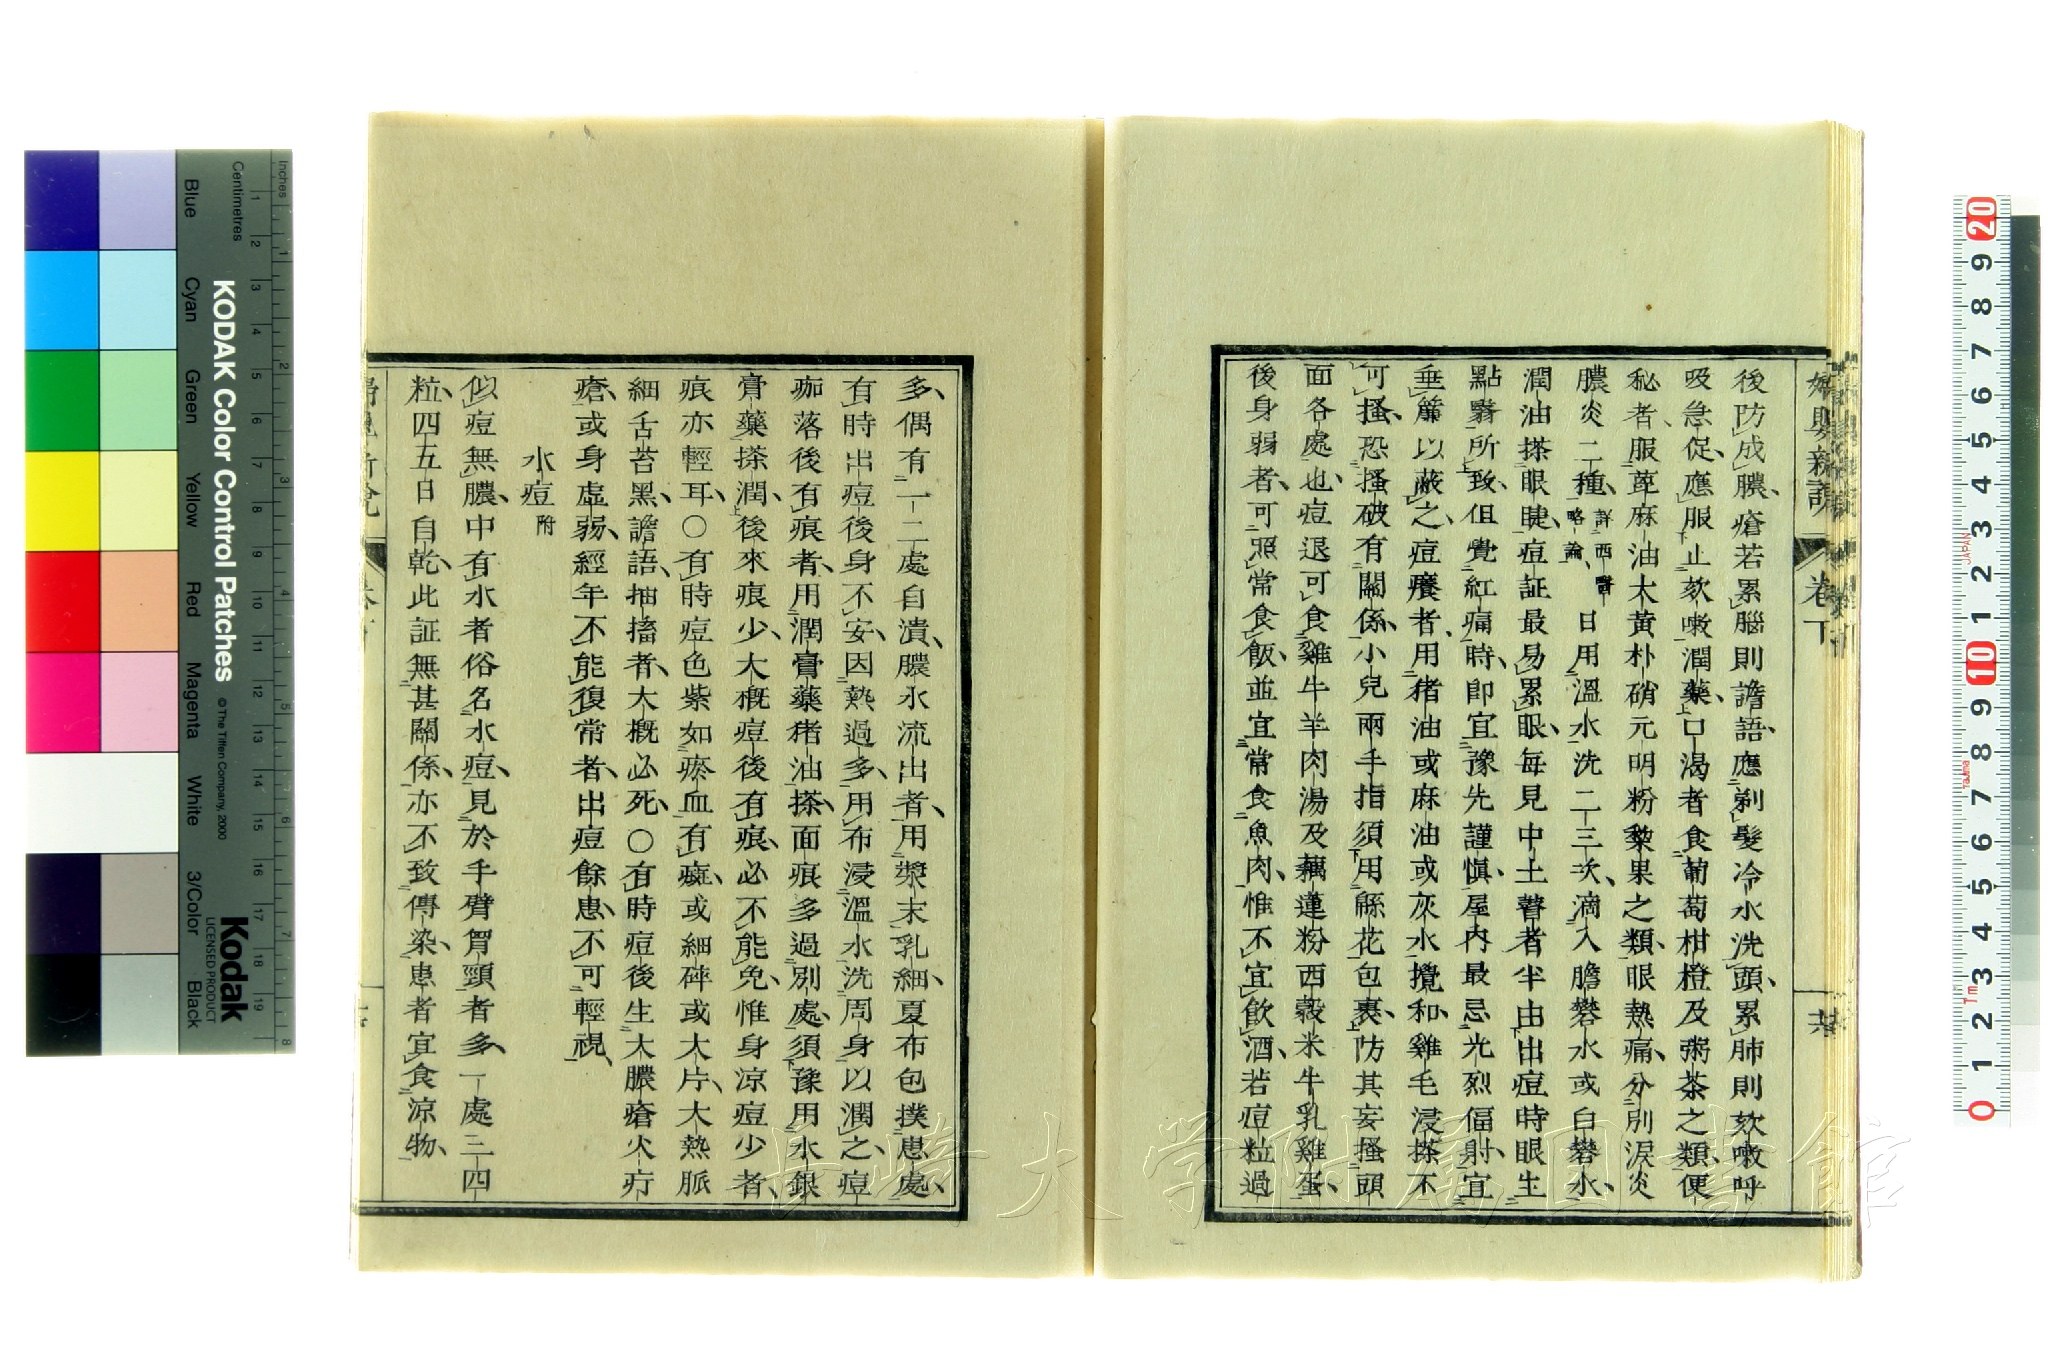 後防成膿瘡若累腦則譫語應剃髮冷水洗頭累肺則欬嗽呼
吸急促應服止欬嗽潤藥口渴者食葡萄柑橙及粥茶之類便
秘者服萞麻油大黃朴硝元明粉黎果之類眼熱痛分別淚炎
膿炎二種詳西醫略論日用溫水洗二三次滴入膽礬水或白礬水
潤油搽眼睫痘証最易累眼每見中土瞽者半由出痘時眼生
點翳所致但覺紅痛時即宜豫先謹慎屋內最忌光烈偪射宜
垂簾以蔽之痘癢者用猪油或麻油或灰水攪和雞毛浸搽不
可搔恐搔破有關係小兒兩手指須用緜花包裹防其妄搔頭
面各處也痘退可食雞牛羊肉湯及藕蓮粉西穀米牛乳雞蛋
後身弱者可照常食飯並宜常食魚肉惟不宜飲酒若痘粒過
多偶有一二處自潰膿水流出者用漿末乳細夏布包撲患處
有時出痘後身不安因熱過多用布浸溫水洗周身以潤之痘
痂落後有痕者用潤膏藥猪油搽面痕多過別處須豫用水銀
膏藥搽潤後來痕少大概痘後有痕必不能免惟身涼痘少者
痕亦輕耳○有時痘色紫如瘀血有癍或細碎或大片大熱脈
細舌苔黑譫語抽搐者大概必死○有時痘後生大膿瘡火疔
瘡或身虛弱經年不能復常者出痘餘患不可輕視
水痘附
似痘無膿中有水者俗名水痘見於手臂胷頸者多一處三四
粒四五日自乾此証無甚關係亦不致傳染患者宜食涼物
卷下
KODAK Color Control Patches
© The Tiffen Company, 2000
Kodak
LICENSED PRODUCT
Inches
Centimetres
Blue
Cyan
Green
Yellow
Red
Magenta
White
3/Color
Black
JAPAN
Tajima
長崎大学附属図書館